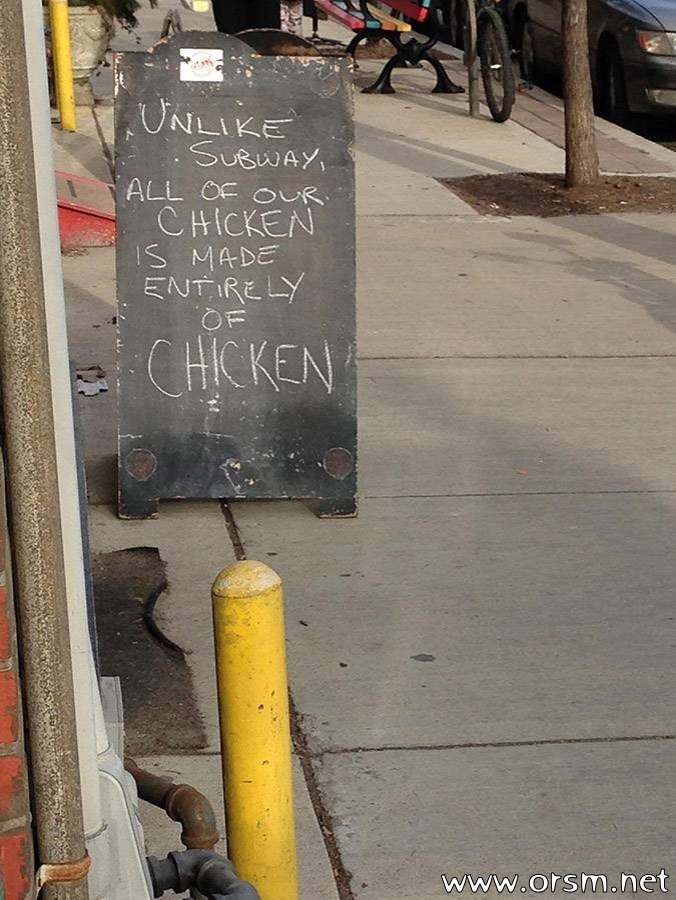 UNLIKE
SUBWAY,
ALL OF OUR
CHICKEN
IS MADE
ENTIRELY
OF
CHICKEN
www.orsm.net